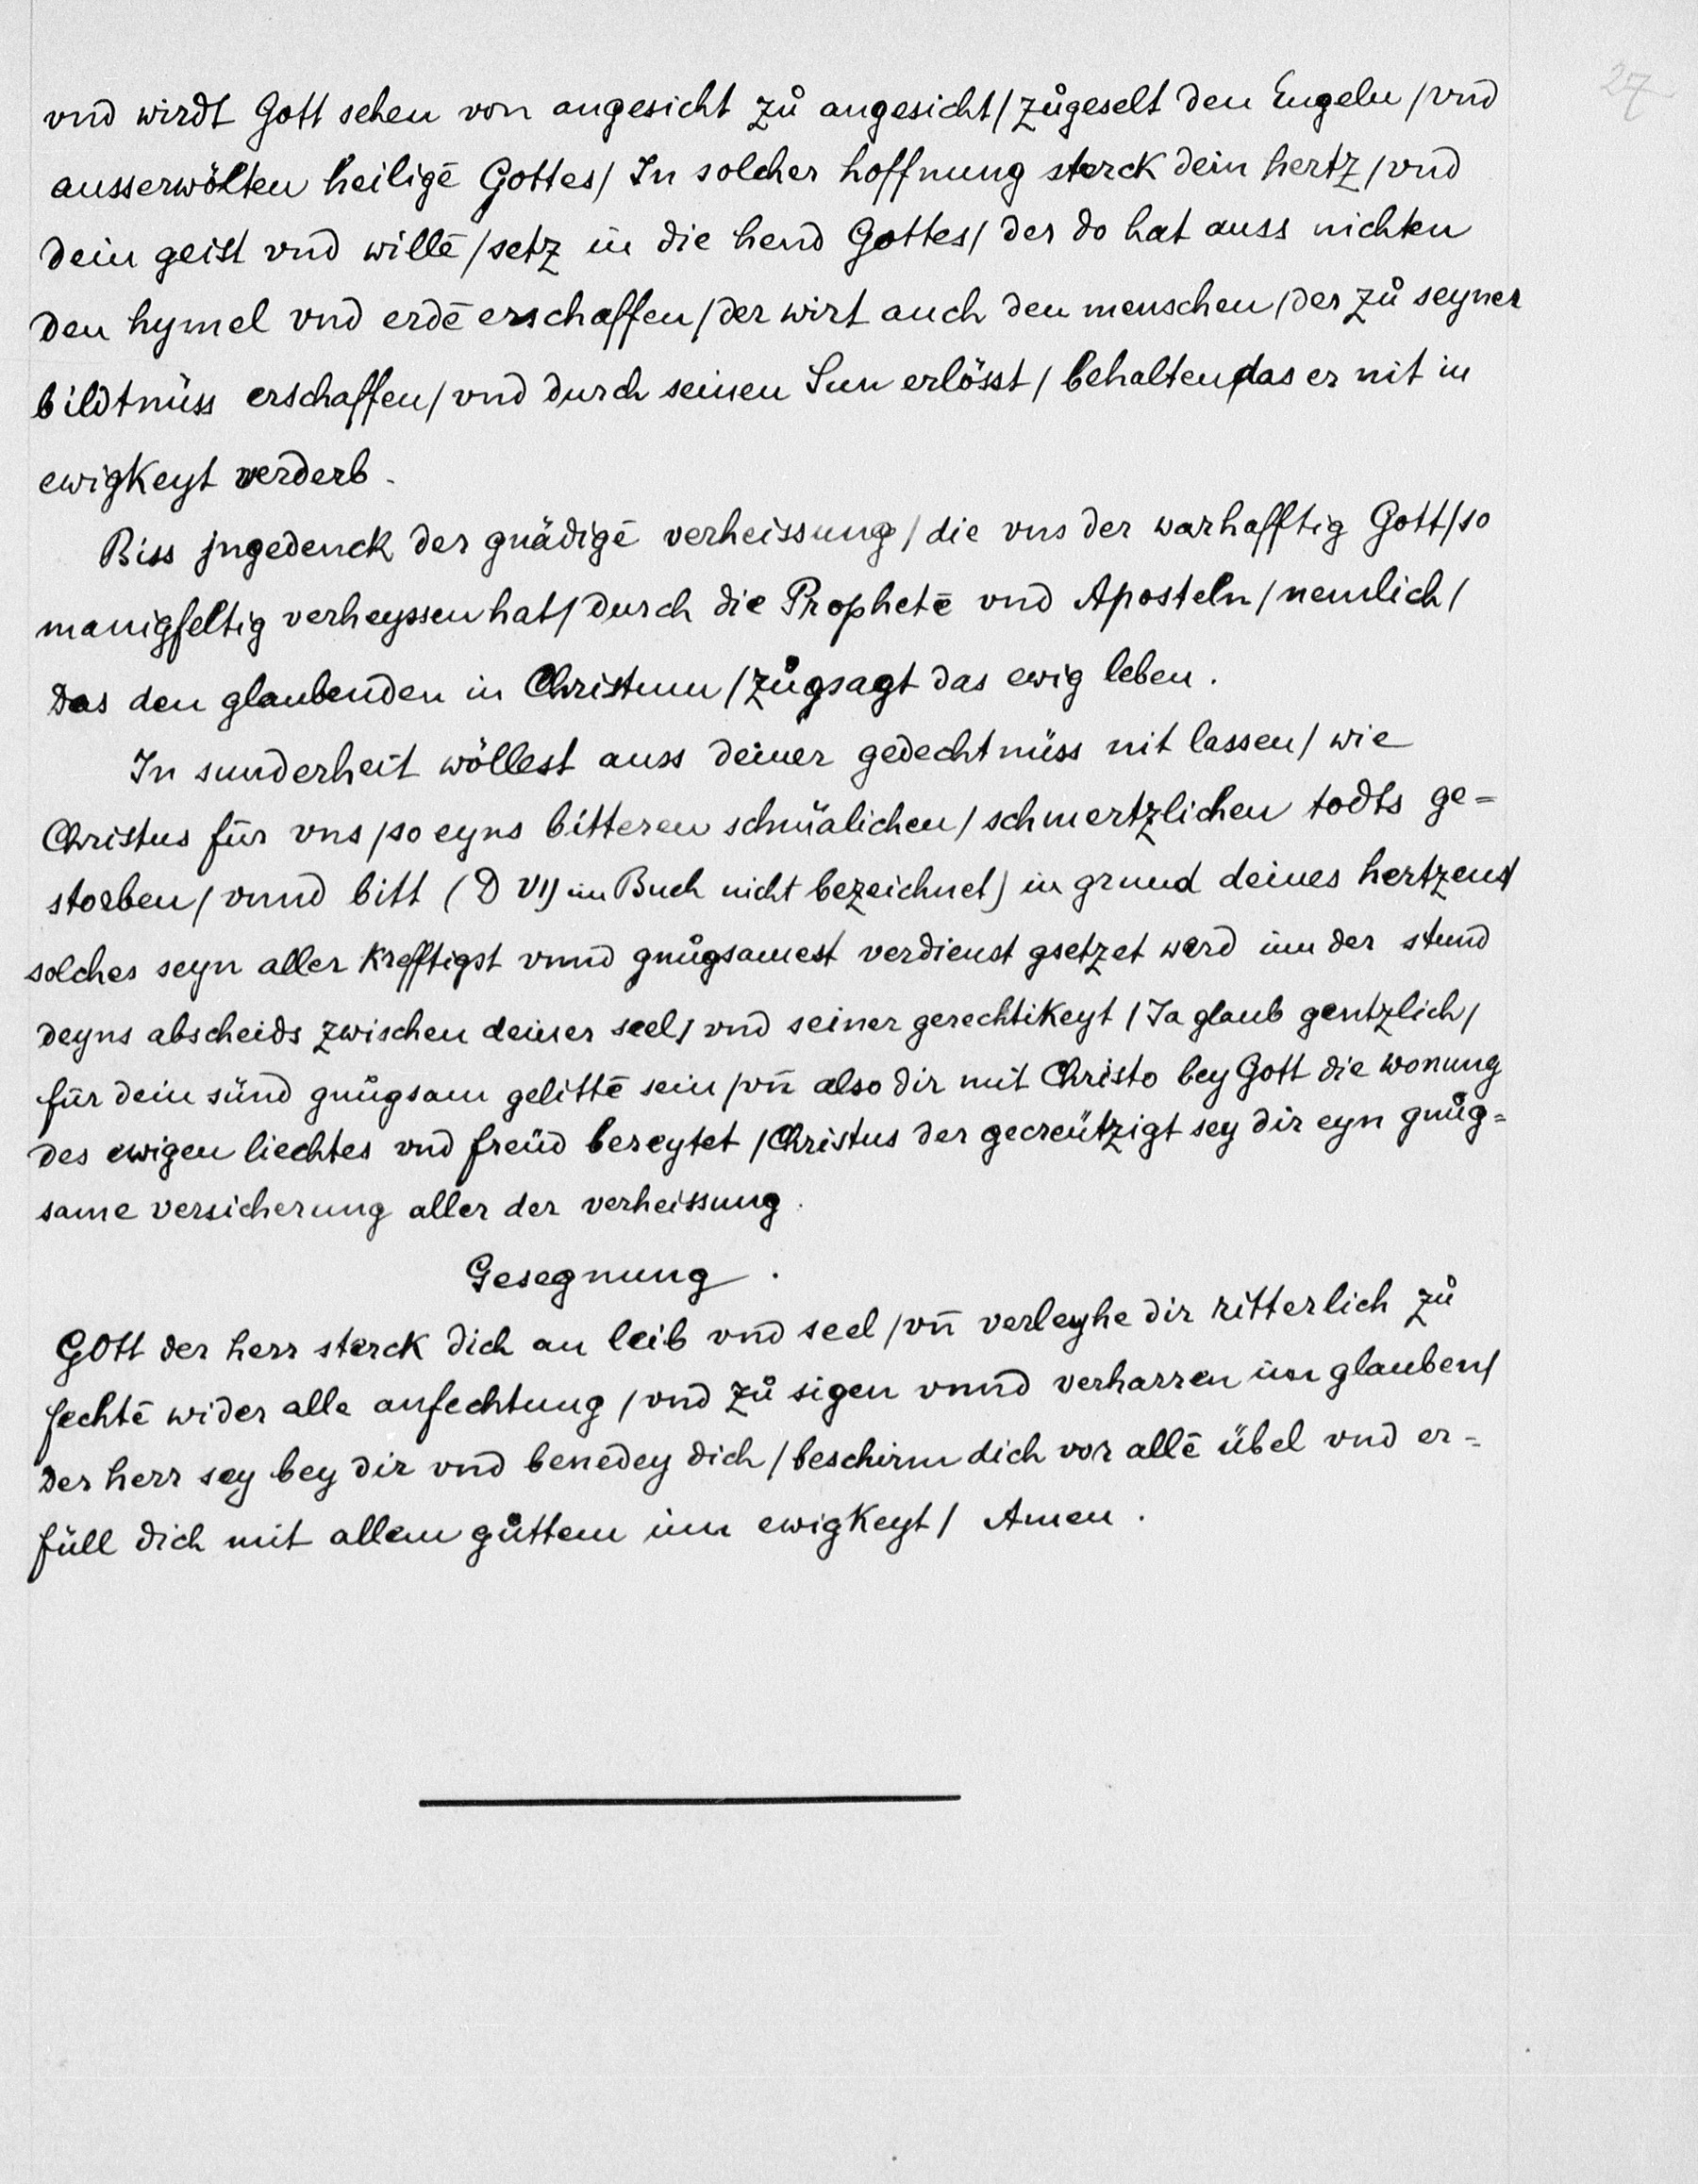 27
vnd wirdt Gott sehen von angesicht zů angesicht/zůgeselt den Engeln/vnd
ausserwölten heiligē Gottes/In solcher hoffnung sterck dein hertz/vnd
dein geist vnd willē/setz in die hend Gottes/der do hat auss nichten
den hymel vnd erdē erschaffen/der wirt auch den menschen/der zů seyner
bildtnüss erschaffen/vnd durch seinen Sun erlösst/behalten/das er nit in
ewigkeyt verderb.
Biss jngedenck der gnädigē verheissung/die vns der warhafftig Gott/so
manigfeltig verheyssen hat/durch die Prophetē vnd Aposteln/nemlich/
das den glaubenden in Christum/zůgsagt das ewig leben.
In sunderheit wöllest auss deiner gedechtnüss nit lassen/wie
Christus für vns/so eyns bitteren schmälichen/schmertzlichen todts ge=
storben/vnnd bitt (D VII im Buch nicht bezeichnet) in grund deines hertzens/
solches seyn aller krefftigst vnnd gnůgsamest verdienst gsetzet werd inn der stund
deyns abscheids zwischen deiner seel/vnd seiner gerechtikeyt/Ja glaub gentzlich/
für dein sünd gnůgsam gelittē sein/vn̄ also dir mit Christo bey Gott die wonung
des ewigen liechtes vnd freüd bereytet/Christus der gecreützigt sey dir eyn gnůg=
same versicherung aller der verheissung.
Gesegnung.
GOtt der herr sterck dich an leib vnd seel/vn̄ verleyhe dir ritterlich zů
fechtē wider alle anfechtung/vnd zů sigen vnnd verharren im glauben/
der herr sey bey dir vnd benedey dich/beschirm dich vor allē übel vnd er=
füll dich mit allem gůttem inn ewigkeyt/Amen.